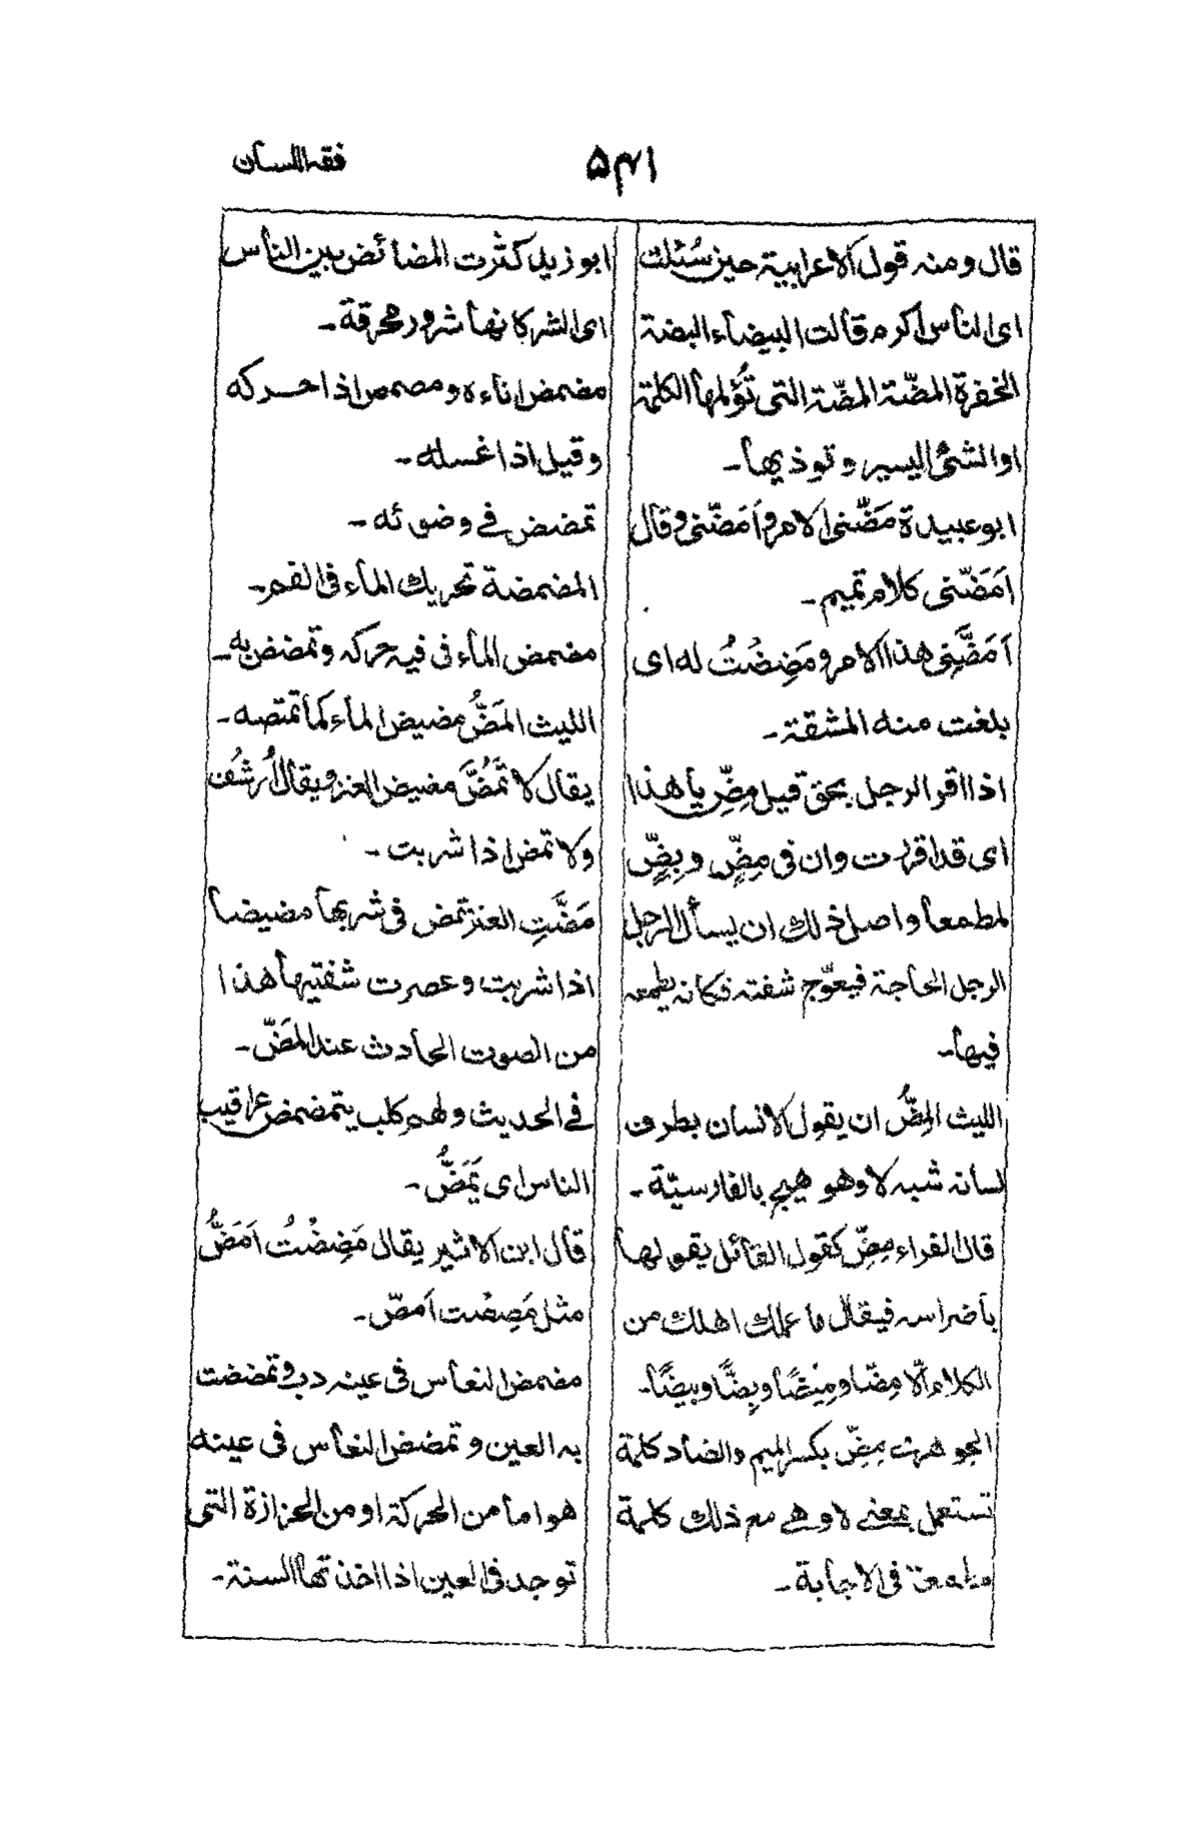 فقه اللسان
۵۴۱
قال ومنه قول الاعرابية حين سُئلت
ای الناس اکرم قالت البیضاء البضة
الخفرة المضّة المضّة التی تُؤلمها الکلمة
او الشئ الیسیر و توذیها۔
ابو عبیدة مَضّنی الامر و اَمَضّنی وقال
اَمَضّنی کلام تمیم۔
اَمَضَّنی هذا الامر و مَضِضْتُ له ای
بلغت منه المشقة۔
اذا اقر الرجل بحق قیل مِضِّ یا هذا
ای قد اقررت وان فی مِضِّ وبِضِّ
لمطمعا واصل ذلك ان یسأل الرجل
الرجل الحاجة فیعوّج شفته فکانه یطمعه
فیها۔
اللیث المِضُّ ان یقول الانسان بطرف
لسانه شبه لا وهو هیچ بالفارسیّة۔
قال الفراء مِضِّ کقول القائل یقولها
باضراسه فیقال ما علمك اهلك من
الکلام الّا مِضّا ومِیْضًا وبِضًّا وبیضًا۔
الجوهری مِضِّ بکسر المیم والضاد کلمة
تستعمل بمعنی لا وهی مع ذلك کلمة
مطمعة فی الاجابة۔
ابو زید کثرت المضائض بین الناس
ای الشر کانها شرور محرقة۔
مضمض اناءه ومصمص اذا حرکه
وقیل اذا غسله۔
تمضمض فی وضوئه۔
المضمضة تحریك الماء فی الفم۔
مضمض الماء فی فیه حرکه و تمضمض به۔
اللیث المَضُّ مضیض الماء کما تمتصه۔
یقال لا تَمُضَّ مضیض العنز ویقال اُرشُف
ولا تمض اذا شربت۔
مَضَّتِ العنز تمض فی شربها مضیضا
اذا شربت وعصرت شفتیها هذا
من الصوت الحادث عند المَضّ۔
فی الحدیث ولهم کلب یتمضمض عراقیب
الناس ای یَمَضُّ۔
قال ابن الاثیر یقال مَضِضْتُ اَمَضُّ
مثل مَصِصْت اَمصّ۔
مضمض النعاس فی عینه دب وتمضمضت
به العین و تمضمض النعاس فی عینه
هو اما من الحرکة او من الحزازة التی
توجد فی العین اذا اخذتها السنة۔